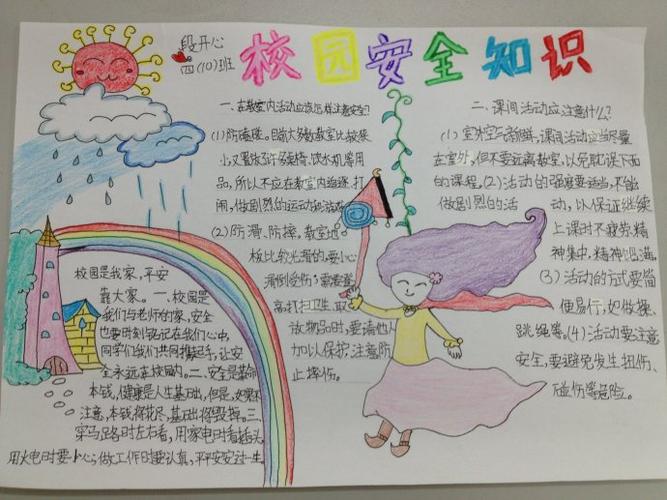 段开心
四(10)班
校园安全知识
一、在教室内活动应该怎样注意安全?
(1)防磕碰。目前大多数教室比较狭
小,又置放了许多桌椅、饮水机等用
品,所以不应在教室内追逐、打
闹,做剧烈的运动和游戏
(2)防滑、防摔。教室地
板比较光滑的,要小心
滑倒受伤;需要登
高打扫卫生、取
放物品时,要请他人
加以保护,注意防
止摔伤。
二、课间活动应注意什么?
(1)室外空气新鲜,课间活动应当尽量
在室外,但不要远离教室,以免耽误下面
的课程。(2)活动的强度要适当,不能
做剧烈的活 动,以保证继续
上课时不疲劳,精
神集中,精神饱满。
(3)活动的方式要简
便易行,如做操、
跳绳等。(4)活动要注意
安全,要避免发生扭伤、
碰伤等危险。
校园是我家,平安
靠大家。一、校园是
我们与老师的家,安全
也要时刻铭记在我们心中,
同学们我们共同携起手,让安
全永远在校园内。二、安全是
本钱,健康是人生基础,但是,如果不
注意,本钱将花尽,基础将毁掉。三、
穿马路时左右看,用家电时看插头,
用火电时要小心,做工作时要认真,平平安安过一生。